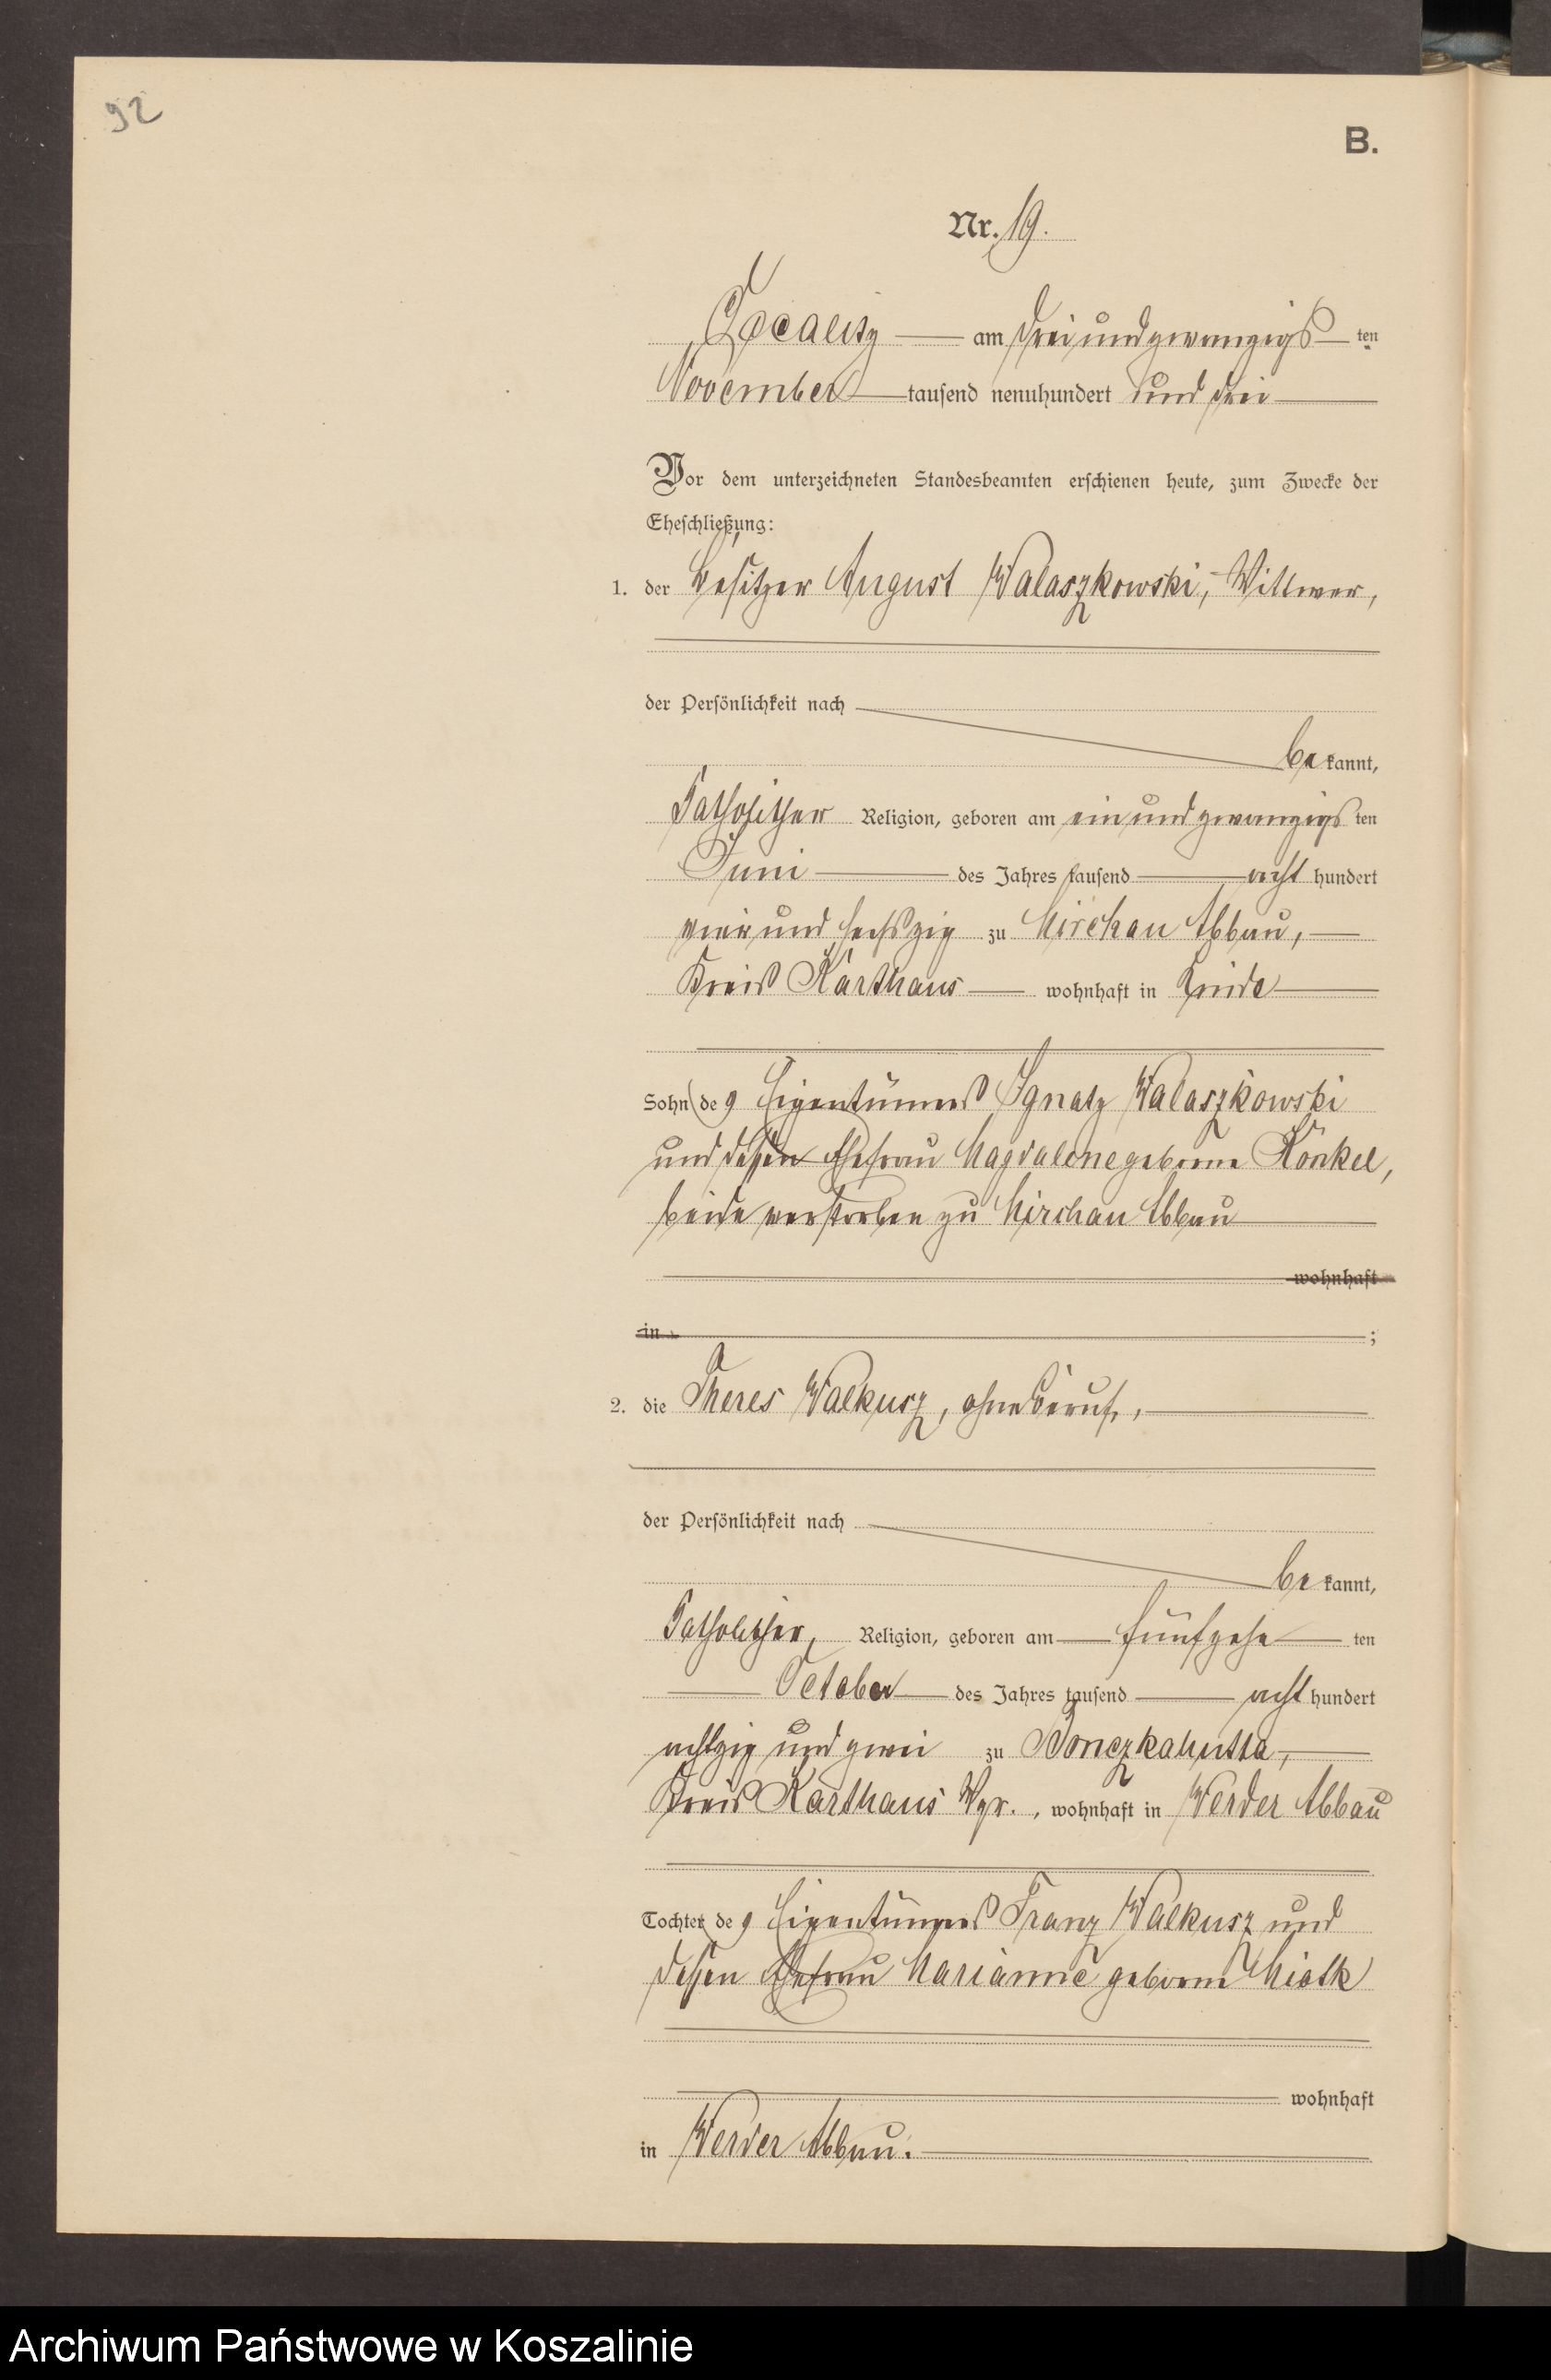 92
B.
Nr. 19.
am drei und zwanzigs ten
November tausend neunhundert und drei
Vor dem unterzeichneten Standesbeamten erschienen heute, zum Zwecke der
Eheschließung:
1. der Besitzer August Walaszkowski, Wittwer,
der Persönlichkeit nach
be kannt,
katholischer Religion, geboren am ein und zwanzigs ten
Juni des Jahres tausend acht hundert
vier und sechszig zu Mirchau Abbau,
Kreis Karthaus wohnhaft in
Sohn des Eigentümers Ignatz Walaszkowski
und dessen Ehefrau Magdalene geborne Konkel,
beide verstorben zu Mirchau Abbau
wohnhaft
in ;
2. die Theres Walkusz, ohne Beruf,
der Persönlichkeit nach
be kannt,
katholischer, Religion, geboren am fünfzehn ten
October des Jahres tausend acht hundert
achtzig und zwei zu Bonczkahutta,
Kreis Karthaus Wpr., wohnhaft in Werder Abbau
Tochter des Eigentümers Franz Walkusz und
dessen Ehefrau Marianne geborne Miotk
wohnhaft
in Werder Abbau.
Archiwum Państwowe w Koszalinie